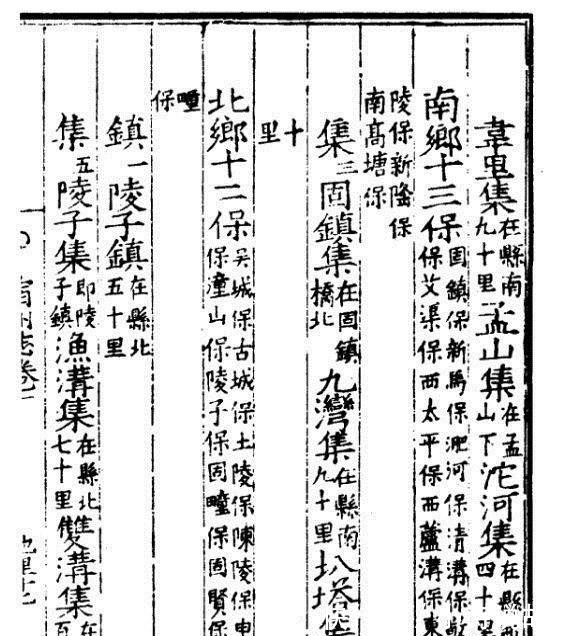 韋里集在縣南九十里孟山集在孟山下沱河集在縣四十
南鄉十三保固鎮保新馬保淝河保清溝保保艾渠保西太平保西蘆溝保東
陵保新隆保南高塘保
集三固鎮集在固鎮橋北九灣集在縣南九十里圤塔
十里
北鄉十二保吳城保古城保土陵保陳陵保申保潼山保陵子保固疃保固賢保
疃保
鎮一陵子鎮在縣北五十里
集五陵子集即陵子鎮漁溝集在縣北七十里雙溝集在百
宿州志卷